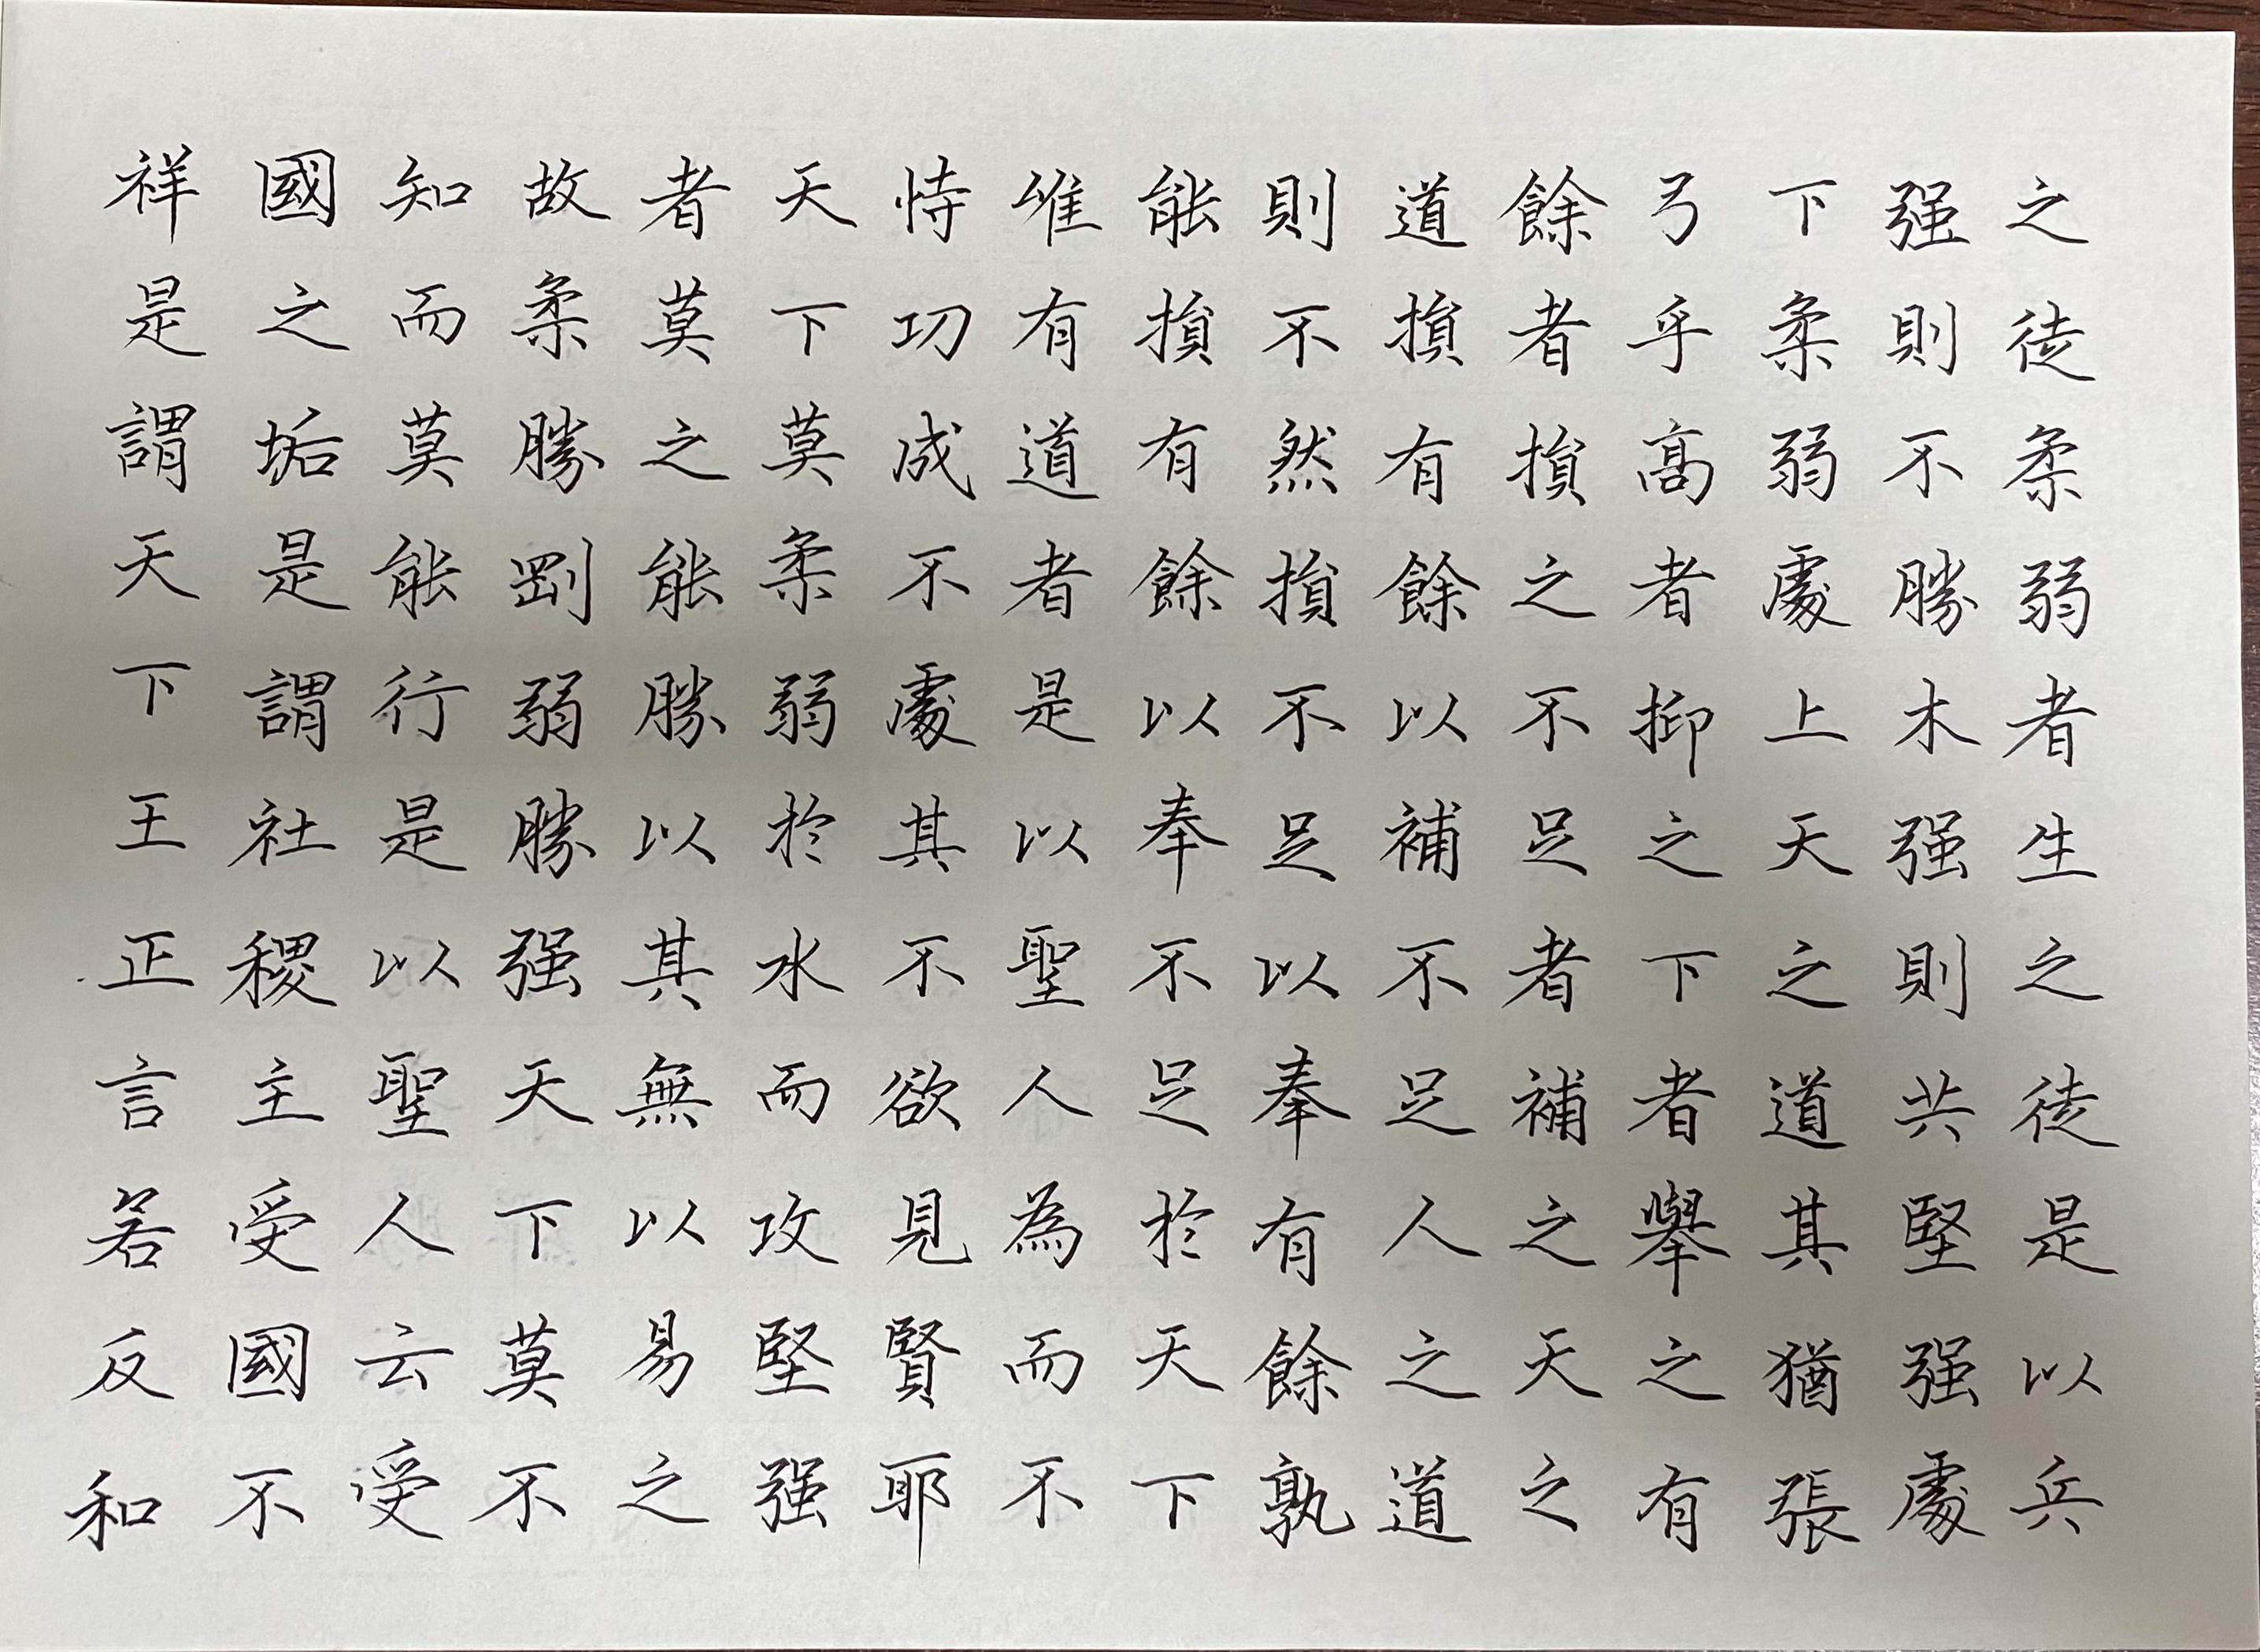 之徒柔弱者生之徒是以兵
强則不勝木强則共堅强處
下柔弱處上天之道其猶張
弓乎高者抑之下者舉之有
餘者損之不足者補之天之
道損有餘以補不足人之道
則不然損不足以奉有餘孰
能損有餘以奉不足於天下
唯有道者是以聖人為而不
恃功成不處其不欲見賢耶
天下莫柔弱於水而攻堅强
者莫之能勝以其無以易之
故柔勝剛弱勝强天下莫不
知而莫能行是以聖人云受
國之垢是謂社稷主受國不
祥是謂天下王正言若反和